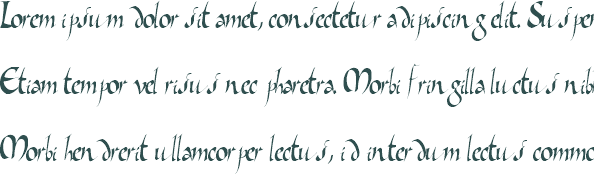 Lorem ipsum dolor sit amet, consectetur adipiscing elit. Susper
Etiam tempor vel risus nec pharetra. Morbi fringilla luctus nib
Morbi hendrerit ullamcorper lectus, id interdum lectus commo